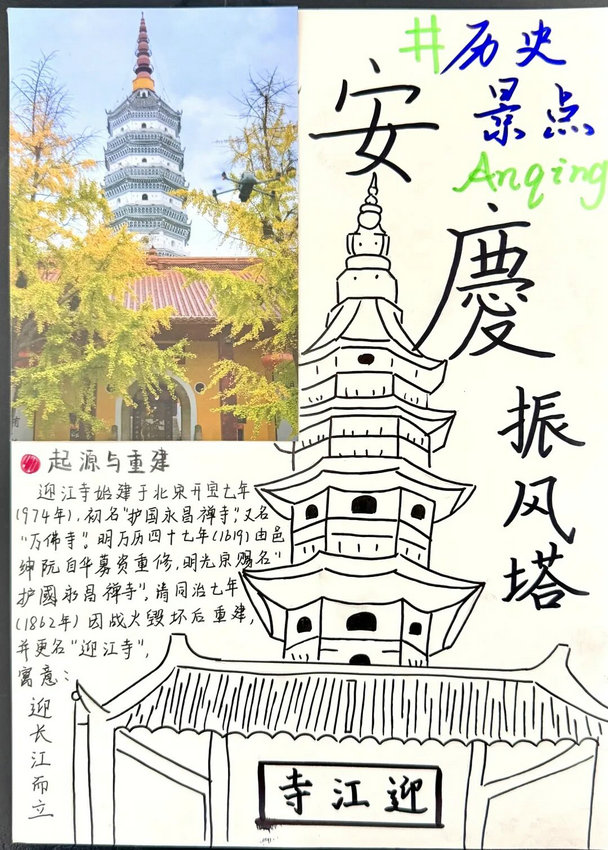 #历史
景点
Anqing
安慶
振风塔
起源与重建
迎江寺始建于北宋开宝七年
(974年),初名"护国永昌禅寺",又名
"万佛寺"。明万历四十七年(1619)由邑
绅阮自华募资重修,明光宗赐名"
护國永昌禅寺",清同治七年
(1862年)因战火毁坏后重建,
并更名"迎江寺",
寓意:
迎长江而立
迎江寺